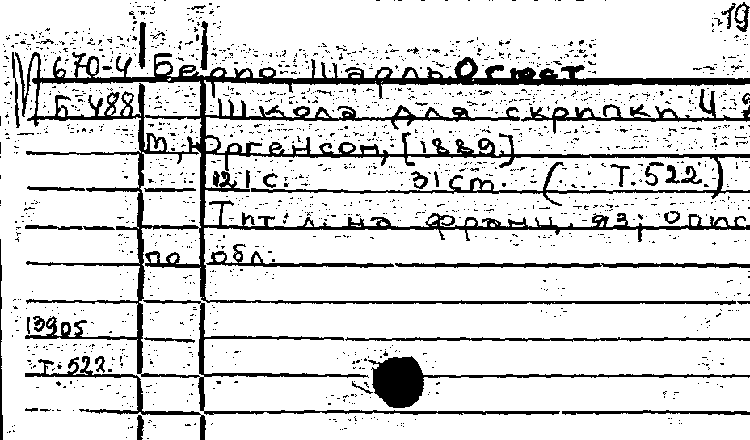 19
М 670-4 Берио, Шарль Огюст
Б-488 Школа для скрипки. Ч. 2
М., Юргенсон, [1889.]
121 с. 31 см. ( Т. 522.)
Тит. л. на франц. яз; опис
по обл.
13905
Т. 522.